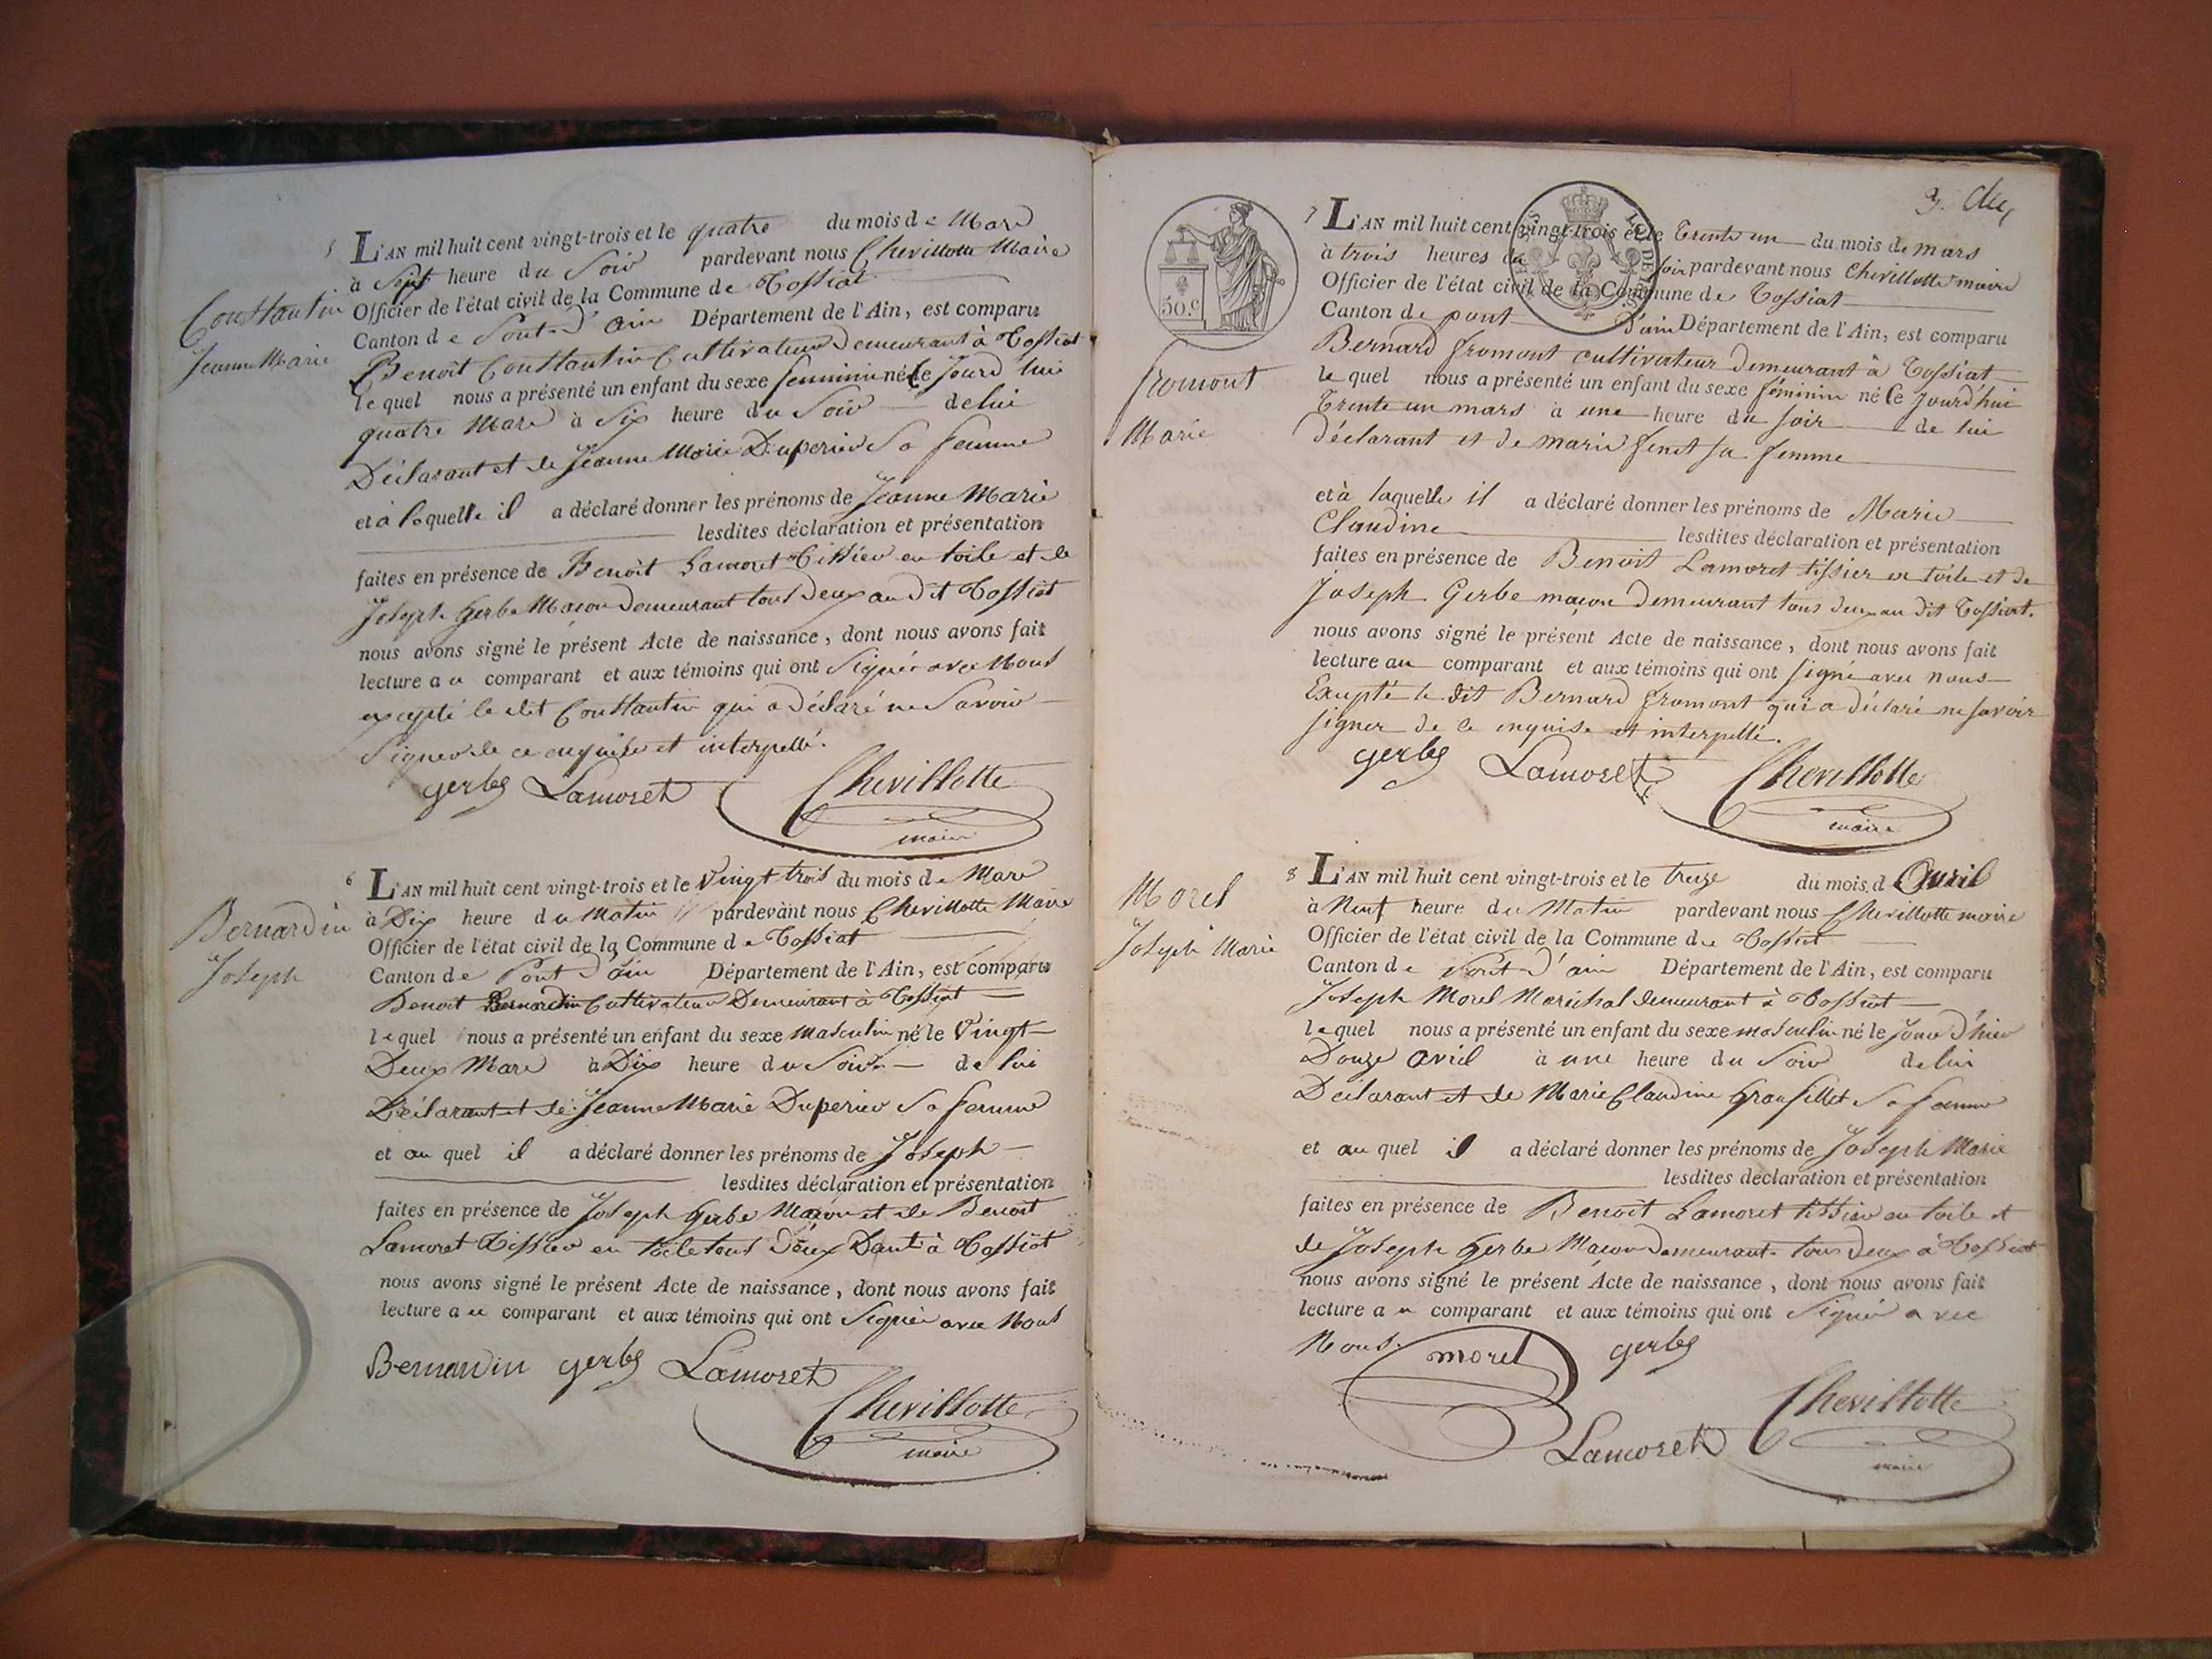 5 L'AN mil huit cent vingt-trois et le quatre du mois de Mars
à Sept heure du Soir pardevant nous Chevillotte Maire
Officier de l'état civil de la Commune de Tossiat
Constantin
Jeanne Marie
Canton de Pont-d'ain Département de l'Ain, est comparu
Benoit Constantin Cultivateur Demeurant à Tossiat
lequel nous a présenté un enfant du sexe feminin né le Jourd'hui
quatre Mars à Six heure du Soir de lui
Déclarant et de Jeanne Marie Duperier Sa femme
et à laquelle il a déclaré donner les prénoms de Jeanne Marie
lesdites déclaration et présentation
faites en présence de Benoit Lamoret Tissier en toile et de
Joseph Gerbe Maçon Demeurant tous deux au dit Tossiat
nous avons signé le présent Acte de naissance, dont nous avons fait
lecture au comparant et aux témoins qui ont Signé avec Nous
excepté le dit Constantin qui a déclaré ne Savoir
Signer de ce enquise et interpellé.
gerbe Lamoret Chevillotte
maire
6 L'AN mil huit cent vingt-trois et le Vingt trois du mois de Mars
à Dix heure du Matin pardevant nous Chevillotte Maire
Bernardin
Joseph
Officier de l'état civil de la Commune de Tossiat
Canton de Pont d'ain Département de l'Ain, est comparu
Benoit Bernardin Cultivateur Demeurant à Tossiat
lequel nous a présenté un enfant du sexe Masculin né le Vingt
Deux Mars à Dix heure du Soir de lui
Déclarant et de Jeanne Marie Duperier Sa femme
et au quel il a déclaré donner les prénoms de Joseph
lesdites déclaration et présentation
faites en présence de Joseph Gerbe Maçon et de Benoit
Lamoret Tissier en toile tous Deux Dant à Tossiat
nous avons signé le présent Acte de naissance, dont nous avons fait
lecture au comparant et aux témoins qui ont Signé avec Nous
Bernardin gerbe Lamoret
Chevillotte
maire
3.
50.c
7 L'AN mil huit cent vingt-trois et le Trente un du mois de mars
à trois heures du soir pardevant nous Chevillotte maire
Officier de l'état civil de la Commune de Tossiat
Canton de pont d'ain Département de l'Ain, est comparu
Fromont
Marie
Bernard fromont cultivateur demeurant à Tossiat
lequel nous a présenté un enfant du sexe féminin né le jourd'hui
Trente un mars à une heure du soir de lui
déclarant et de marie fenet sa femme
et à laquelle il a déclaré donner les prénoms de Marie
Claudine lesdites déclaration et présentation
faites en présence de Benoit Lamoret tissier en toile et de
Joseph Gerbe maçon demeurant tous deux au dit Tossiat.
nous avons signé le présent Acte de naissance, dont nous avons fait
lecture au comparant et aux témoins qui ont signé avec nous
Excepté le dit Bernard fromont qui a déclaré ne savoir
signer de ce enquise et interpellé.
gerbe Lamoret Chevillotte
maire
8 L'AN mil huit cent vingt-trois et le treize du mois d Avril
à Neuf heure du Matin pardevant nous Chevillotte maire
Morel
Joseph Marie
Officier de l'état civil de la Commune de Tossiat
Canton de Pont-d'ain Département de l'Ain, est comparu
Joseph Morel Maréchal demeurant à Tossiat
lequel nous a présenté un enfant du sexe masculin né le Jour d'hier
Douze avril à une heure du Soir de lui
Déclarant et de Marie Claudine Sa femme
et au quel il a déclaré donner les prénoms de Joseph Marie
lesdites déclaration et présentation
faites en présence de Benoit Lamoret tissier en toile et
de Joseph Gerbe Maçon demeurant tous deux à Tossiat
nous avons signé le présent Acte de naissance, dont nous avons fait
lecture au comparant et aux témoins qui ont Signé avec
Nous. morel gerbe
Lamoret Chevillotte
maire